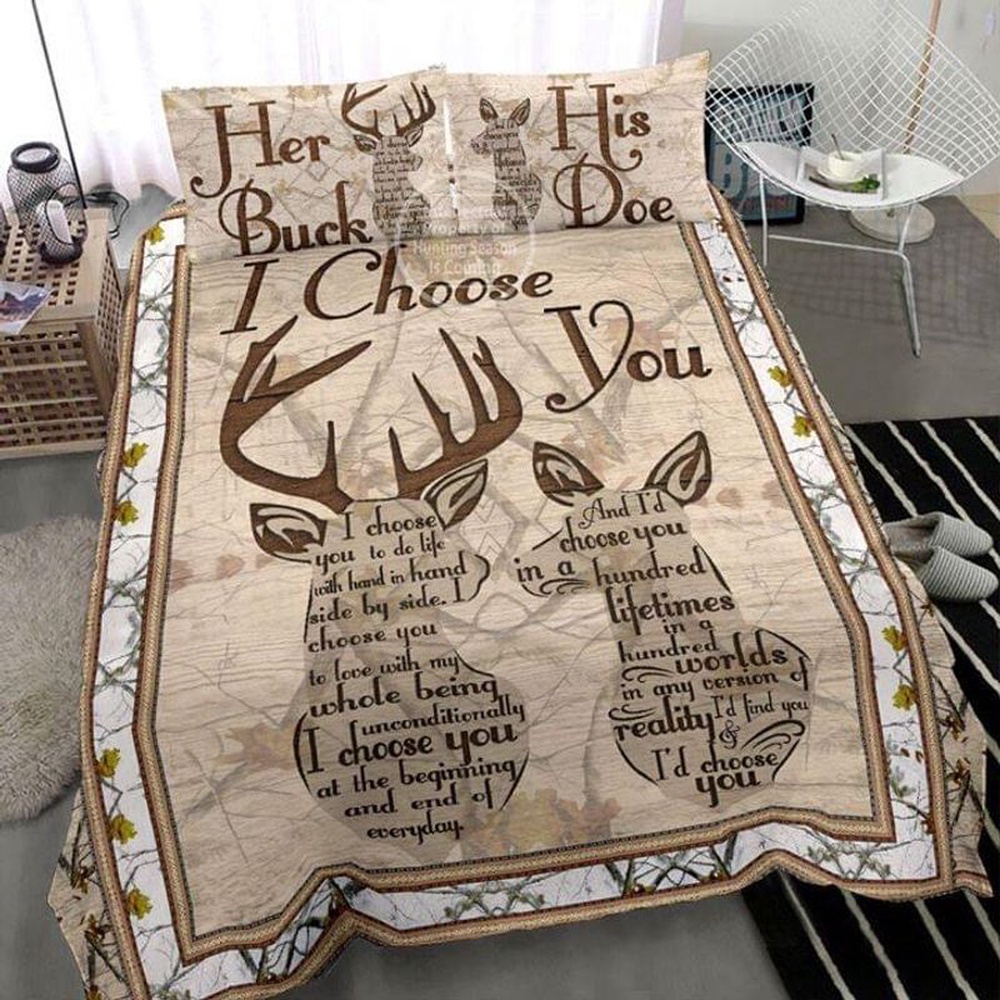 Her
Buck
His
Doe
Property of
Hunting Season
I Choose
You
I choose
you to do life
with hand in hand
side by side. I
choose you
to love with my
whole being
unconditionally
I choose you
at the beginning
and end of
everyday.
And I'd
choose you
in a hundred
lifetimes
in a
hundred worlds
in any version of
reality I'd find you
&
I'd choose
you